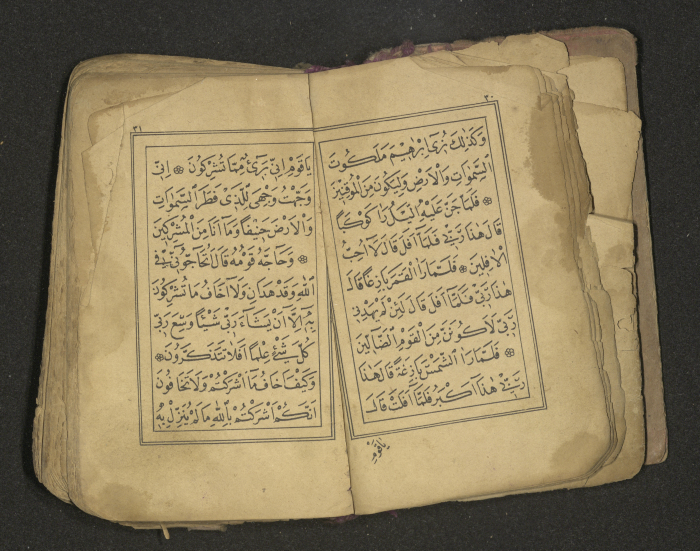 ٣٠
وَكَذٰلِكَ نُرٓى اِبْرٰهٖيمَ مَلَكُوتَ
السَّمٰوَاتِ وَالْاَرْضِ وَلِيَكُونَ مِنَ الْمُوقِنٖينَ
۞ فَلَمَّا جَنَّ عَلَيْهِ الَّيْلُ رَاٰ كَوْكَبًا
قَالَ هٰذَا رَبّٖى فَلَمَّٓا اَفَلَ قَالَ لَٓا اُحِبُّ
الْاٰفِلٖينَ ۞ فَلَمَّا رَاَ الْقَمَرَ بَازِغًا قَالَ
هٰذَا رَبّٖى فَلَمَّٓا اَفَلَ قَالَ لَئِنْ لَمْ يَهْدِنٖى
رَبّٖى لَاَكُونَنَّ مِنَ الْقَوْمِ الضَّٓالّٖينَ
۞ فَلَمَّا رَاَ الشَّمْسَ بَازِغَةً قَالَ هٰذَا
رَبّٖى هٰذَٓا اَكْبَرُ فَلَمَّٓا اَفَلَتْ قَالَ
يَا قَوْمِ
٣١
يَا قَوْمِ اِنّٖى بَرٖٓىءٌ مِمَّا تُشْرِكُونَ ۞ اِنّٖى
وَجَّهْتُ وَجْهِىَ لِلَّذٖى فَطَرَ السَّمٰوَاتِ
وَالْاَرْضَ حَنٖيفًا وَمَٓا اَنَا مِنَ الْمُشْرِكٖينَ
۞ وَحَٓاجَّهُ قَوْمُهُ قَالَ اَتُحَٓاجُّٓونّٖى فِى
اللّٰهِ وَقَدْ هَدٰانِ وَلَٓا اَخَافُ مَا تُشْرِكُونَ
بِهٖٓ اِلَّٓا اَنْ يَشَٓاءَ رَبّٖى شَيْئًا وَسِعَ رَبّٖى
كُلَّ شَىْءٍ عِلْمًا اَفَلَا تَتَذَكَّرُونَ ۞
وَكَيْفَ اَخَافُ مَٓا اَشْرَكْتُمْ وَلَا تَخَافُونَ
اَنَّكُمْ اَشْرَكْتُمْ بِاللّٰهِ مَا لَمْ يُنَزِّلْ بِهٖ